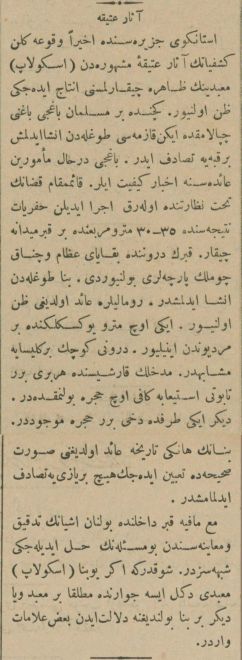 آثار عتيقه
استانكوی جزيره‌سنده اخيراً وقوعه كلن
كشفياتك آثار عتيقهٔ مشهوره‌دن (اسقولاپ)
معبدينك ظاهره چيقارلمسنی انتاج ايده‌جكی
ظن اولنيور. كچنده بر مسلمان باغجی باغنی
چاپالامقده ايكن قازمه‌سی طوغله‌دن انشا ايدلمش
بر قبه‌يه تصادف ايدر. باغجی درحال مأمورين
عائده‌سنه اخبار كيفيت ايلر. قائممقام قضانك
تحت نظارتنده اوله‌رق اجرا ايديلن حفريات
نتيجه‌سنده ٣٥-٣٠ مترو مربعنده بر قبر ميدانه
چيقار. قبرك دروننده بقايای عظام و چناق
چوملك پارچه‌لری بولنيوردی. بنا طوغله‌دن
انشا ايدلمشدر. روماليلره عائد اولديغی ظن
اولنيور. ايكی اوچ مترو يوكسكلكنده بر
مرديوندن اينيليور. درونی كوچك بر كليسايه
مشابهدر. مدخلك قارشيسنده هر بری برر
تابوتی استيعابه كافی اوچ حجره بولنمقده‌در.
ديكر ايكی طرفده دخی برر حجره موجوددر.
بنانك هانكی تاريخه عائد اولديغنی صورت
صحيحه‌ده تعيين ايده‌جك هيچ بر يازی‌يه تصادف
ايدلمامشدر.
مع مافيه قبر داخلنده بولنان اشيانك تدقيق
و معاينه‌سندن بو مسئله‌نك حل ايديله‌جكی
شبهه‌سزدر. شوقدركه اكر بو بنا (اسقولاپ)
معبدی دكل ايسه جوارنده مطلقا بر معبد ويا
ديكر بر بنا بولنديغنه دلالت ايدن بعض علامات
واردر.